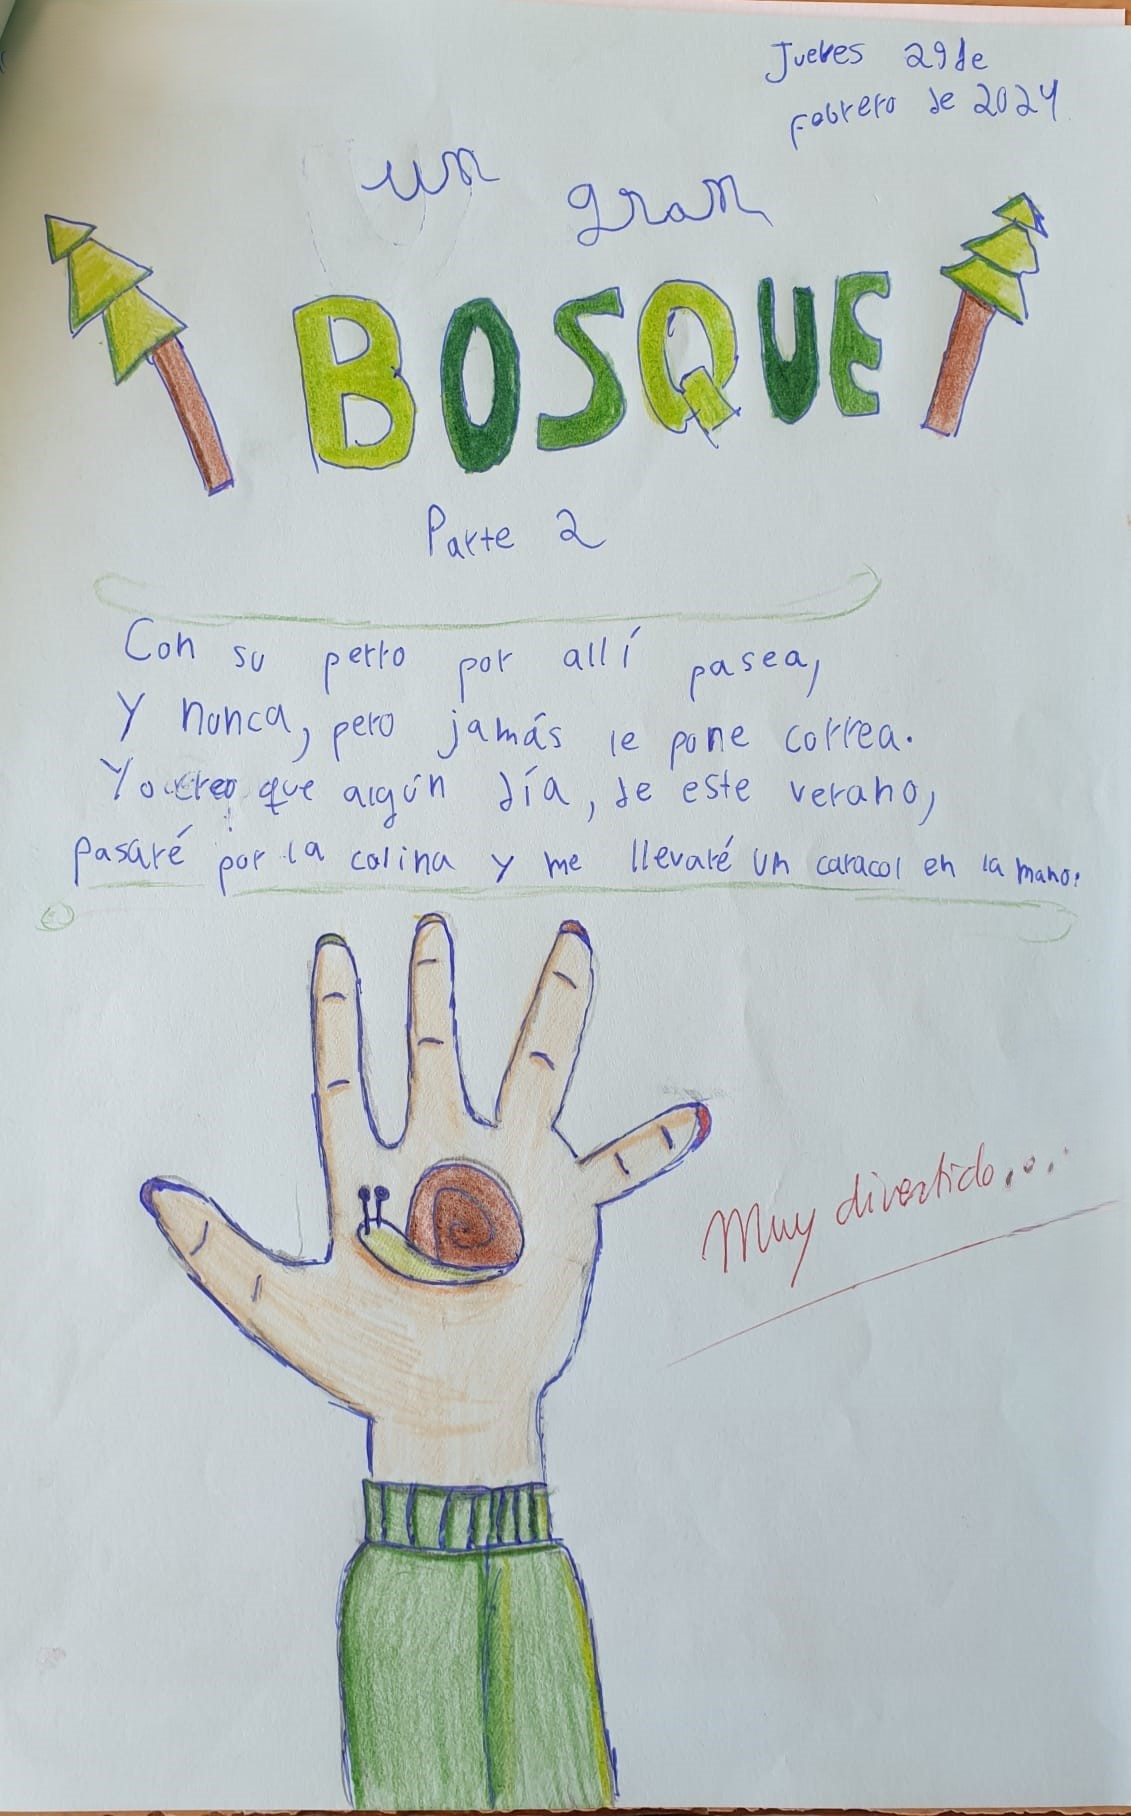 Jueves 29 de
febrero de 2024
un gran
BOSQUE
Parte 2
Con su perro por allí pasea,
Y nunca, pero jamás le pone correa.
Yo creo que algún día, de este verano,
pasaré por la colina y me llevaré un caracol en la mano.
Muy divertido...